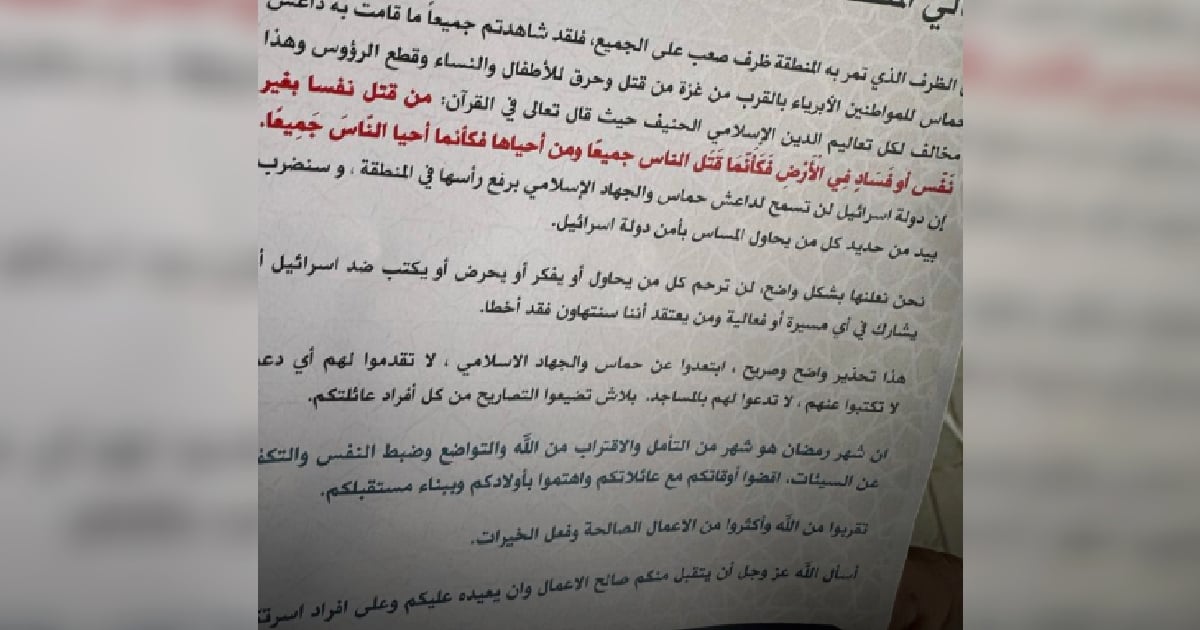 الظرف الذي تمر به المنطقة ظرف صعب على الجميع، فلقد شاهدتم جميعاً ما قامت به داعش
حماس للمواطنين الأبرياء بالقرب من غزة من قتل وحرق للأطفال والنساء وقطع الرؤوس وهذا
مخالف لكل تعاليم الدين الإسلامي الحنيف حيث قال تعالى في القرآن: من قتل نفسا بغير
نَفْس أو فَسَادٍ فِي الْأَرْضِ فَكَأَنَّمَا قَتَلَ الناس جميعًا ومن أحياها فكأنما أحيا النَّاسَ جَمِيعًا.
إن دولة اسرائيل لن تسمح لداعش حماس والجهاد الإسلامي برفع رأسها في المنطقة ، و سنضرب
بيد من حديد كل من يحاول المساس بأمن دولة اسرائيل.
نحن نعلنها بشكل واضح، لن ترحم كل من يحاول أو يفكر أو يحرض أو يكتب ضد اسرائيل أ
يشارك في أي مسيرة أو فعالية ومن يعتقد أننا سنتهاون فقد أخطا.
هذا تحذير واضح وصريح ، ابتعدوا عن حماس والجهاد الاسلامي ، لا تقدموا لهم أي دعم
لا تكتبوا عنهم ، لا تدعوا لهم بالمساجد. بلاش تضيعوا التصاريح من كل أفراد عائلتكم.
ان شهر رمضان هو شهر من التأمل والاقتراب من الله والتواضع وضبط النفس والتكف
عن السيئات. اقضوا أوقاتكم مع عائلاتكم واهتموا بأولادكم وببناء مستقبلكم.
تقربوا من الله وأكثروا من الاعمال الصالحة وفعل الخيرات.
أسأل الله عز وجل أن يتقبل منكم صالح الاعمال وان يعيده عليكم وعلى افراد اسرتك